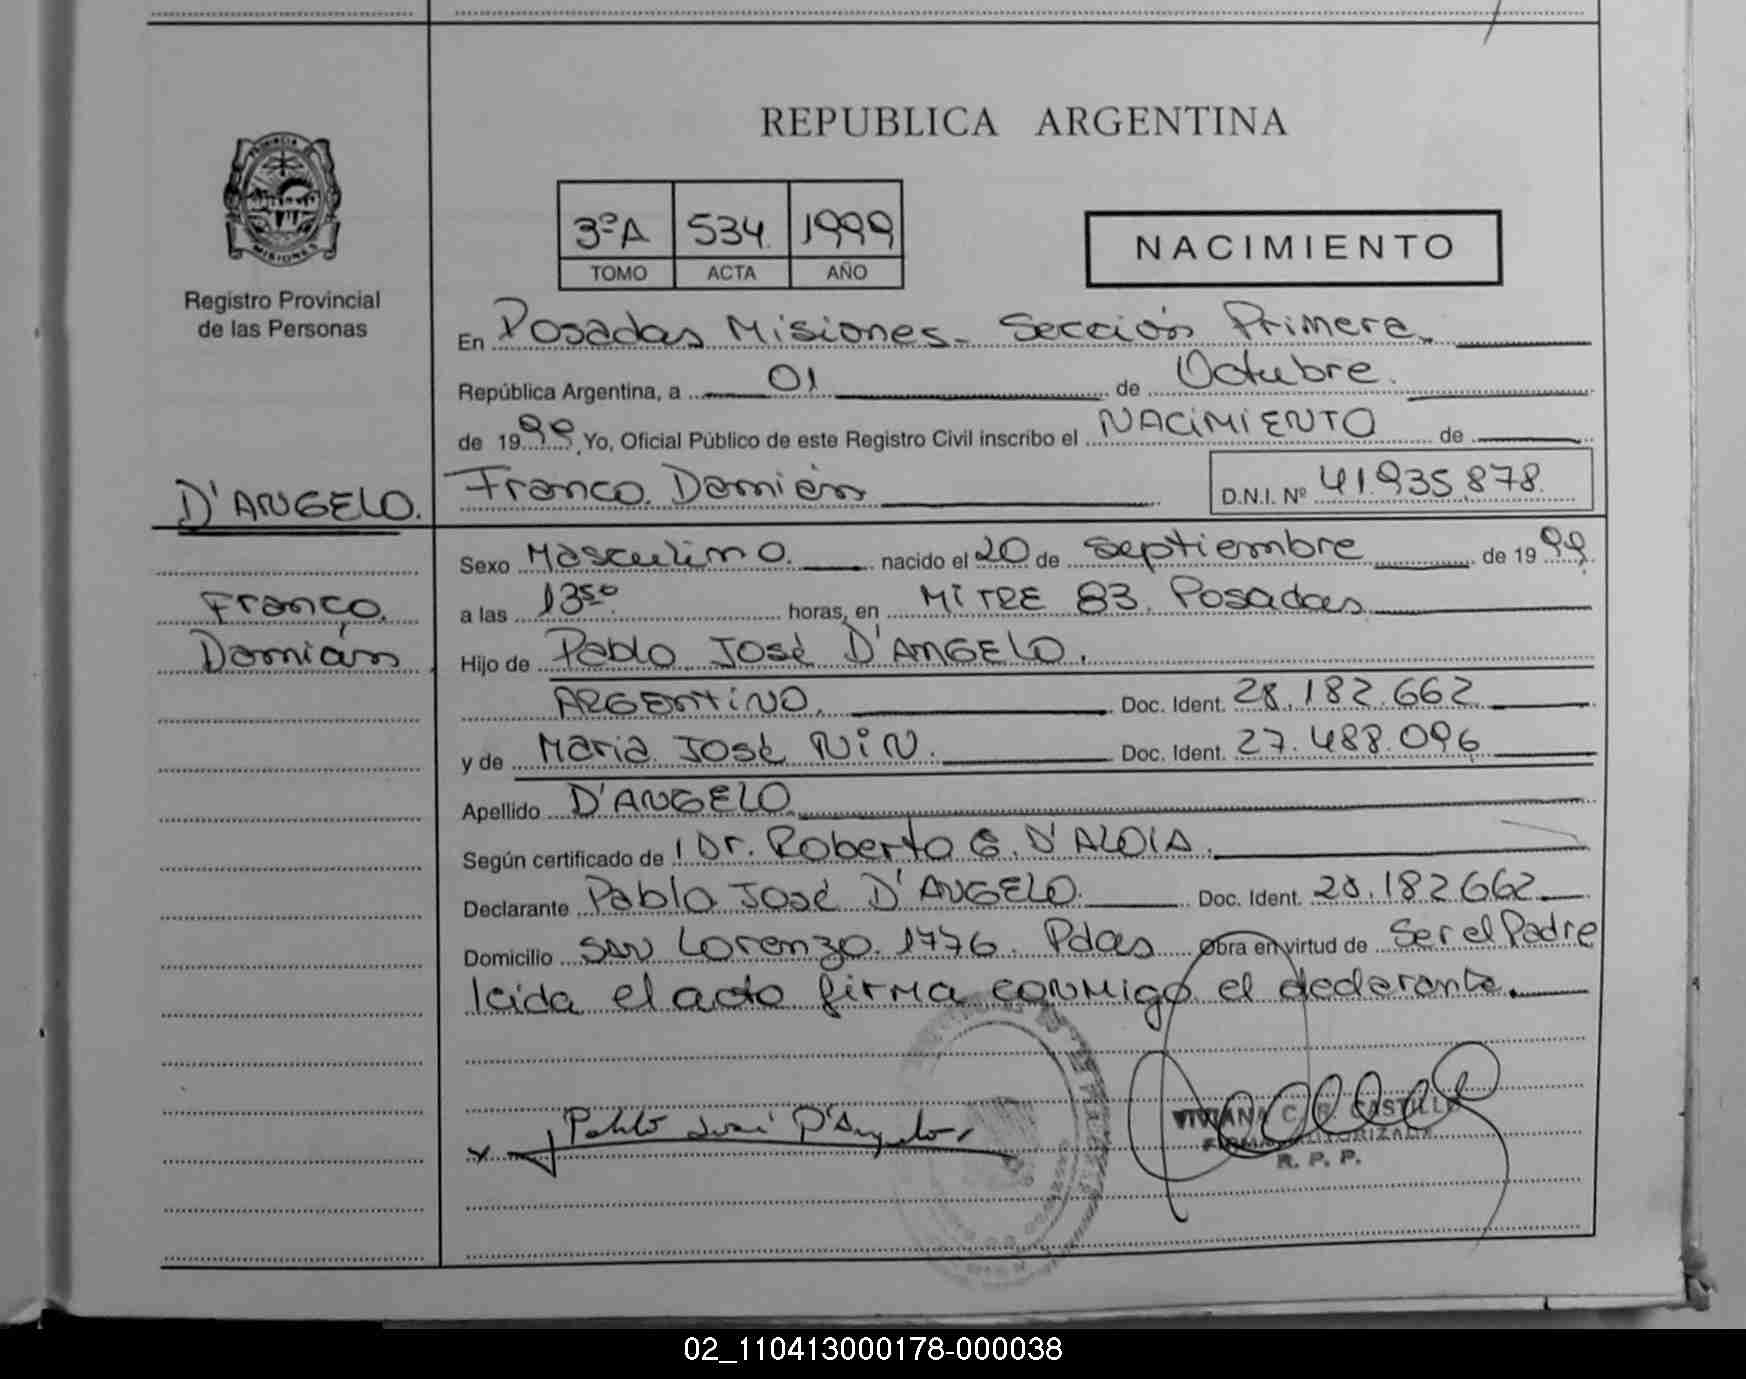 REPUBLICA ARGENTINA
PROVINCIA DE MISIONES
Registro Provincial
de las Personas
3ºA 534 1999
TOMO ACTA AÑO
NACIMIENTO
En Posadas Misiones. Sección Primera
República Argentina, a 01 de Octubre.
de 1999. Yo, Oficial Público de este Registro Civil inscribo el NACIMIENTO de
D'ANGELO. Franco Damián D.N.I. Nº 41.935.878.
Sexo Masculino. nacido el 20 de Septiembre de 1999.
Franco
Damián
a las 13⁵⁰ horas, en MITRE 83. Posadas
Hijo de Pablo José D'ANGELO.
ARGENTINO. Doc. Ident. 28.182.662
y de Maria José NIN. Doc. Ident. 27.488.096
Apellido D'ANGELO
Según certificado de l Dr. Roberto G. D'ALOIA.
Declarante Pablo José D'ANGELO. Doc. Ident. 28.182.662
Domicilio SAN Lorenzo. 1776. Pdas Obra en virtud de Ser el Padre
leida el acto firma conmigo el declarante.
x Pablo José D'Angelo
VIVIANA C. R. CASTILLO
FIRMA AUTORIZADA
R. P. P.
02_110413000178-000038